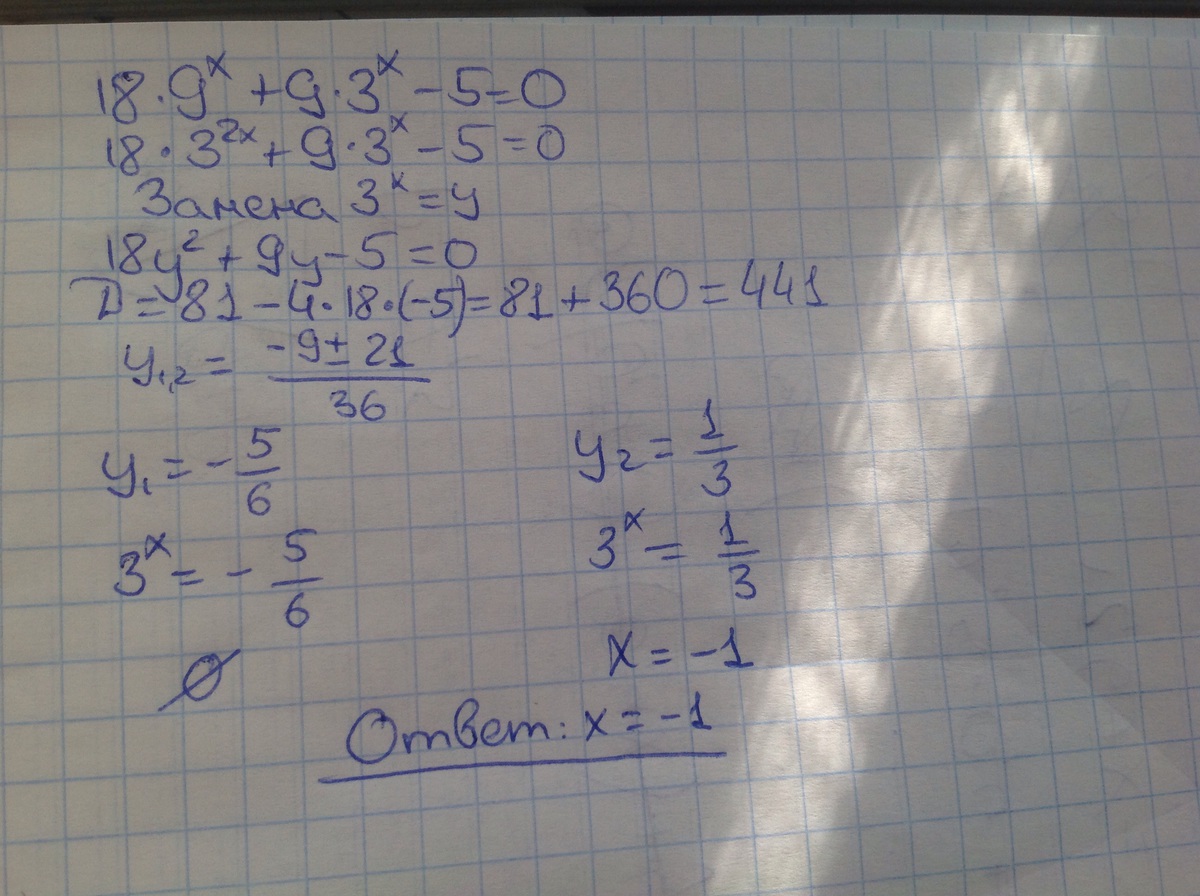 18·9^x + 9·3^x − 5 = 0
18·3^2x + 9·3^x − 5 = 0
Замена 3^x = y
18y² + 9y − 5 = 0
D = 81 − 4·18·(−5) = 81 + 360 = 441
y₁,₂ = (−9 ± 21)/36
y₁ = −5/6 y₂ = 1/3
3^x = −5/6 3^x = 1/3
∅ x = −1
Ответ: x = −1